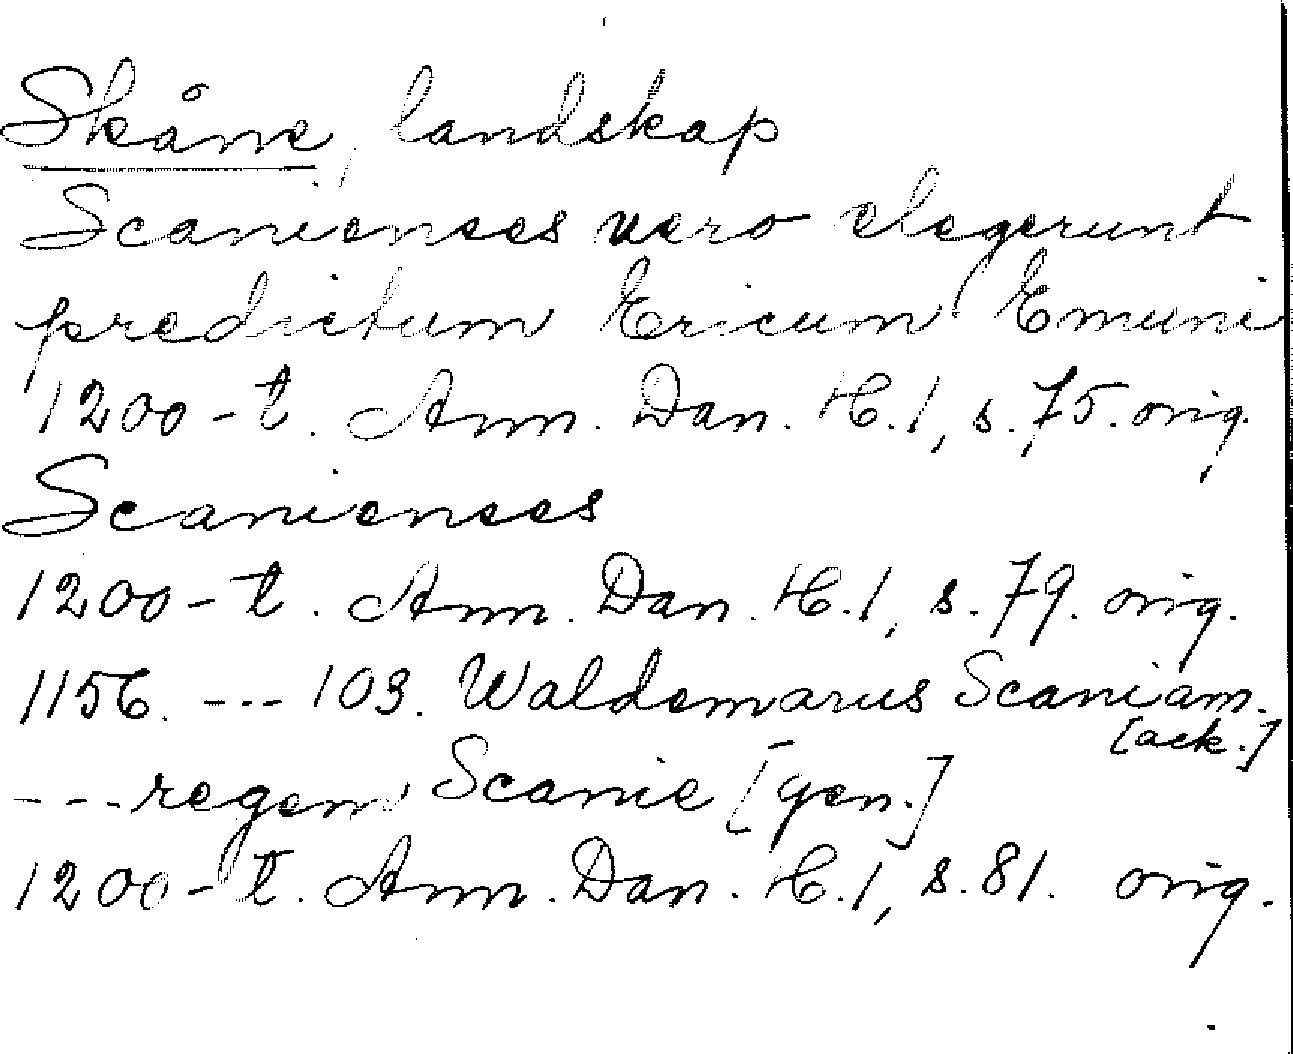 Skåne, landskap
Scanienses vero elegerunt
predictum Ericum Emuni
1200-t. Ann. Dan. H. 1, s. 75. orig.
Scanienses
1200-t. Ann. Dan. H. 1, s. 79. orig.
1156. --- 103. Waldemarus Scaniam.
[ack.]
--- regem Scanie [gen.]
1200-t. Ann. Dan. H. 1, s. 81. orig.